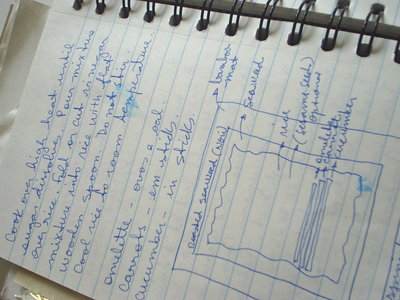 Cook over high heat until
sugar dissolves. Pour mixture
over rice. Fold or cut in sugar
mixture into rice with flat
wooden spoon. Do not stir.
Cool rice to room temperature.
omelette - ovos e sal
carrots - em sticks
cucumber - in sticks
seaweed nori
mat
seaweed
rice
(sesame seed)
optional
omelette
cucumber